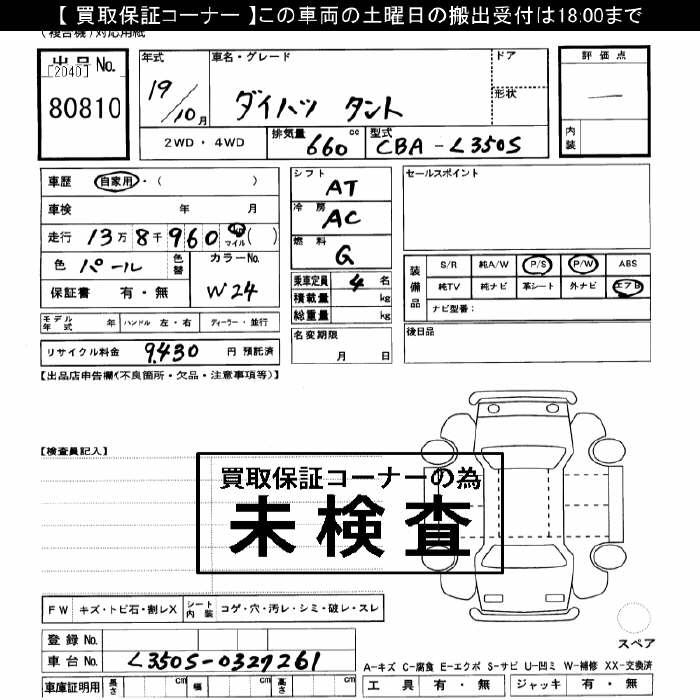 【 買取保証コーナー 】この車両の土曜日の搬出受付は18:00まで
(複合機)対応用紙
出品No.
[2040]
80810
年式 車名・グレード ドア
19/10月 ダイハツ タント 形状
2WD・4WD 排気量 660 cc 型式 CBA-L350S
評価点
—
内装
車歴 自家用・( )
車検 年 月
走行 13万8千960 km マイル ( )
色 パール 色替 カラーNo. W24
保証書 有・無
モデル年式 年 ハンドル 左・右 ディーラー・並行
リサイクル料金 9,430 円 預託済
シフト AT
冷房 AC
燃料 G
乗車定員 4 名
積載量 kg
総重量 kg
名変期限
月 日
セールスポイント
装備品
S/R 純A/W P/S P/W ABS
純TV 純ナビ 革シート 外ナビ エアB
ナビ型番:
後日品
【出品店申告欄(不良箇所・欠品・注意事項等)】
【検査員記入】
買取保証コーナーの為
未検査
FW キズ・トビ石・割レX シート内装 コゲ・穴・汚レ・シミ・破レ・スレ
登録No.
車台No. L350S-0327261
車庫証明用 長さ cm 幅 cm 高さ cm
スペア
A-キズ C-腐食 E-エクボ S-サビ U-凹ミ W-補修 XX-交換済
工具 有・無 ジャッキ 有・無